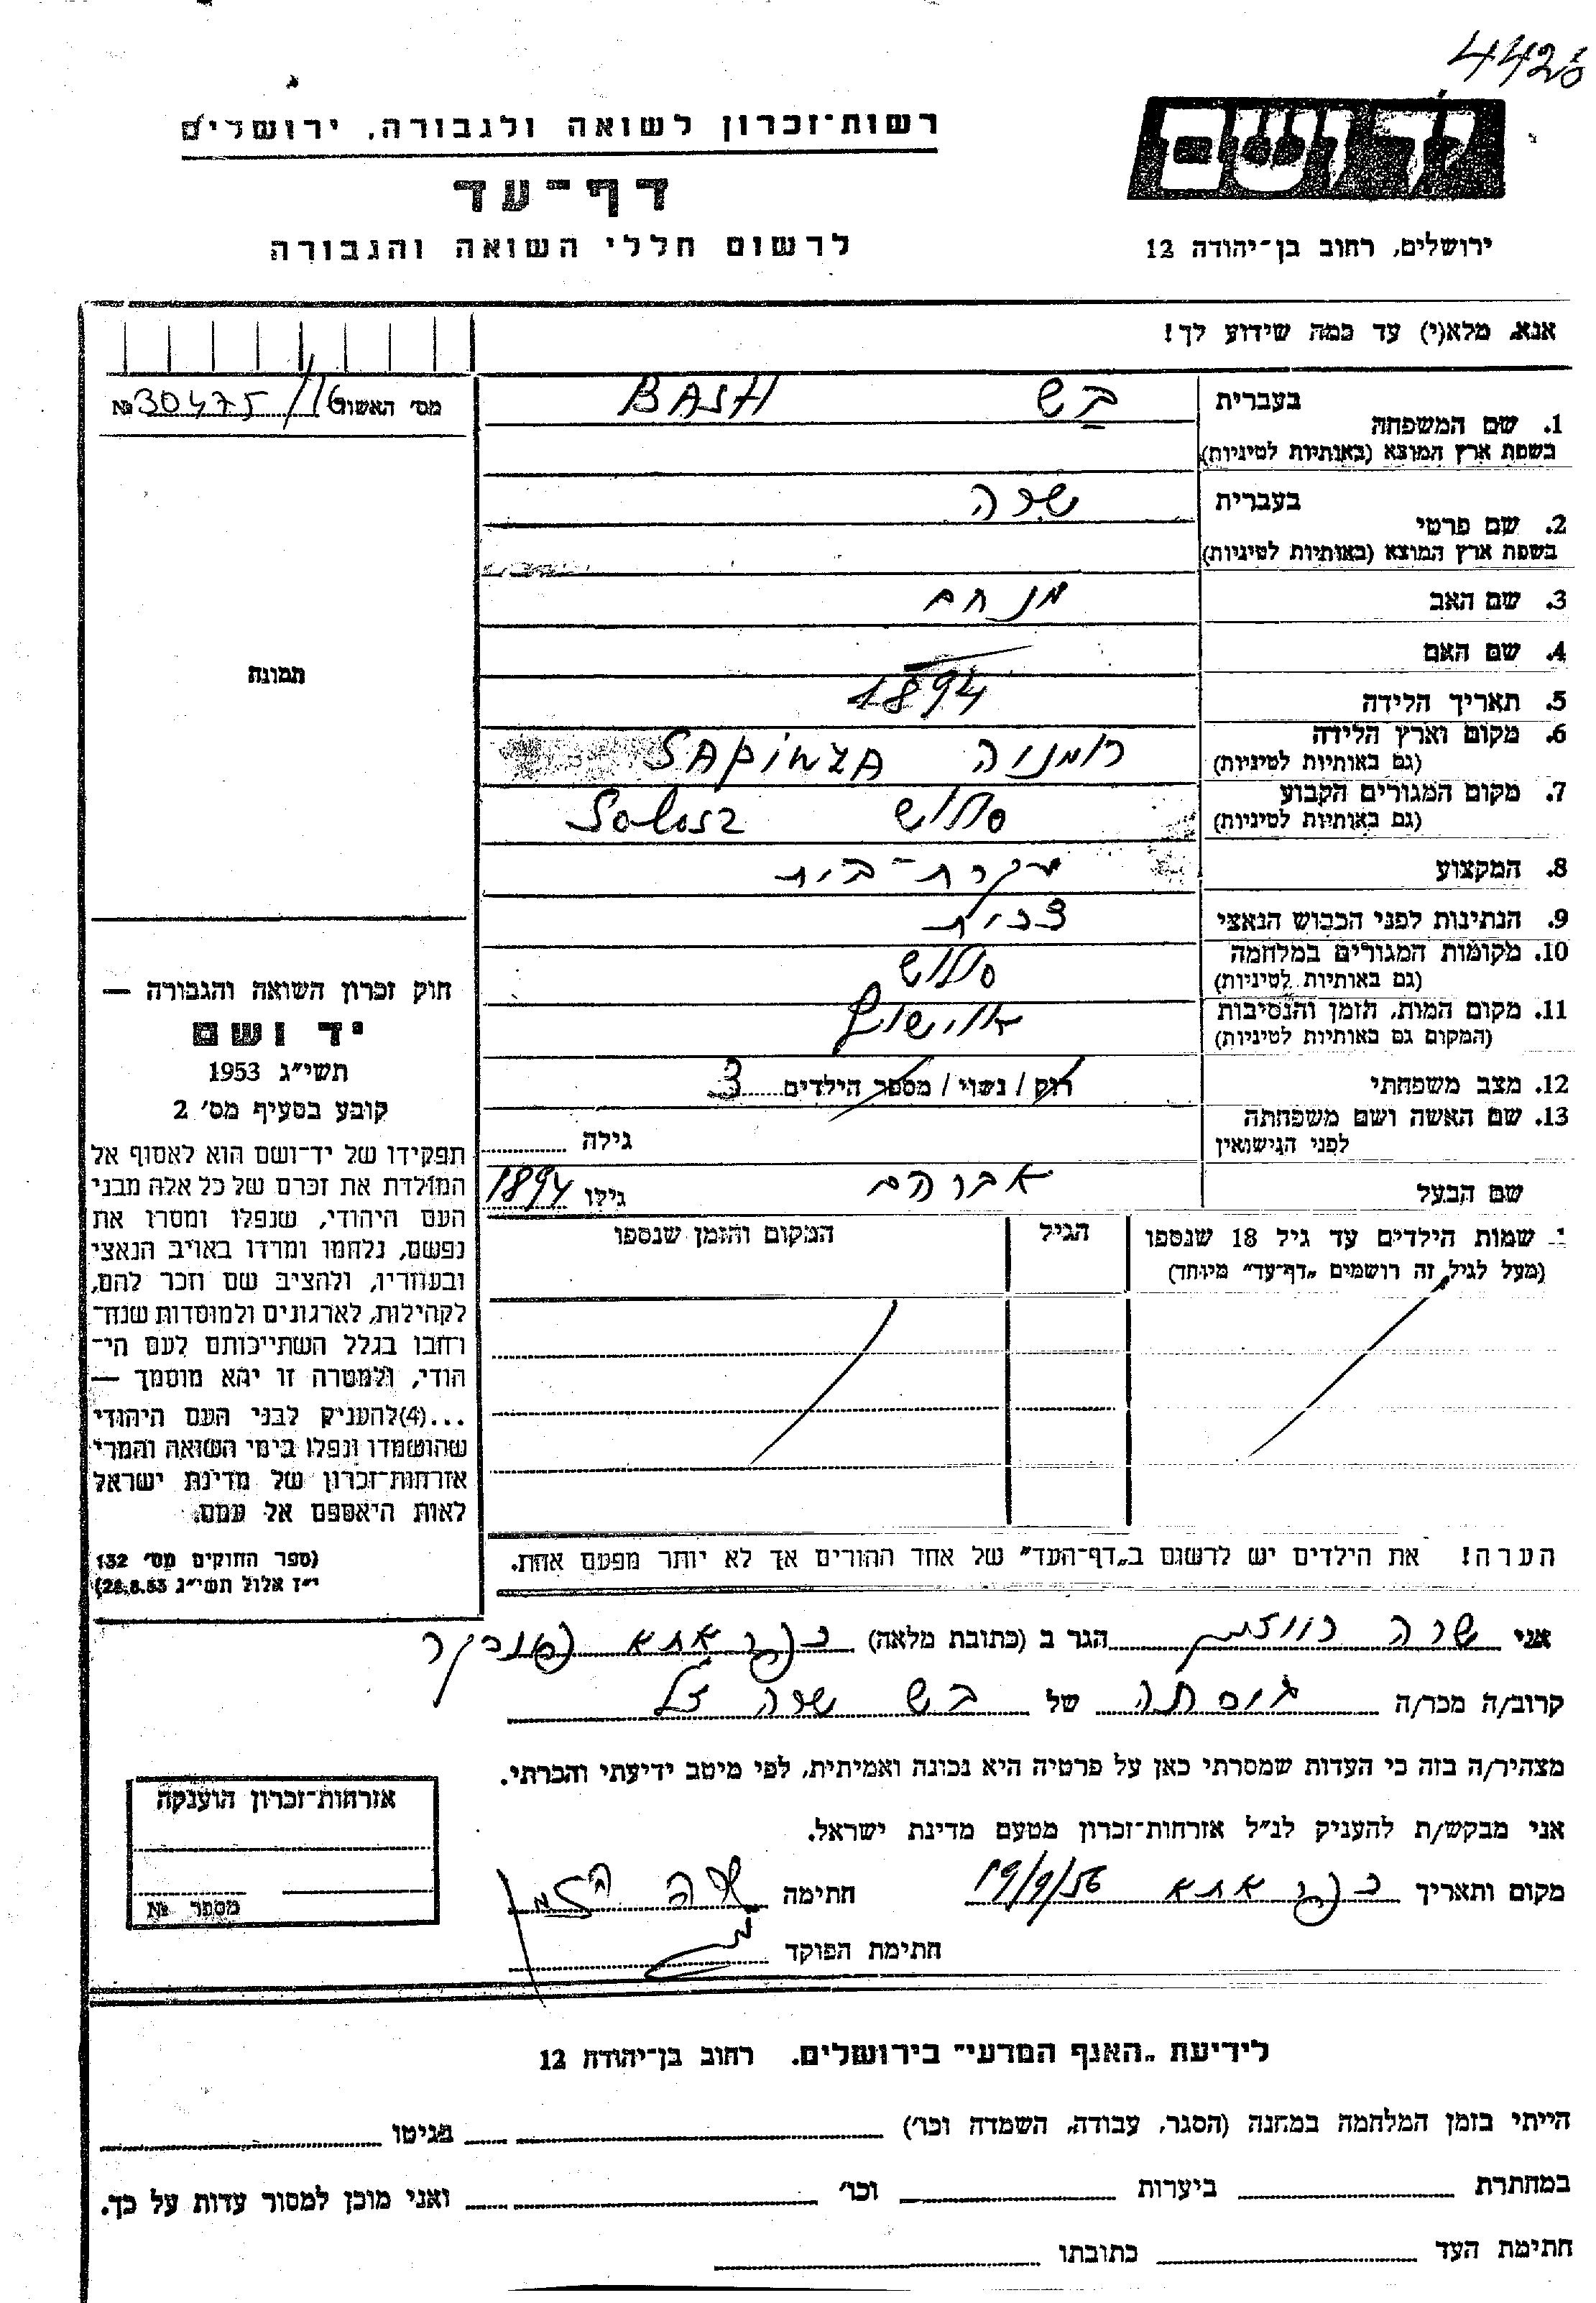 4426
רשות־זכרון לשואה ולגבורה, ירושלים
יד ושם
דף־עד
לרשום חללי השואה והגבורה
ירושלים, רחוב בן־יהודה 12
אנא, מלא(י) עד כמה שידוע לך!
מס׳ האשור № 30475/16
1. שם המשפחה בעברית בש BASH
בשפת ארץ המוצא (באותיות לטיניות)
2. שם פרטי בעברית שרה
בשפת ארץ המוצא (באותיות לטיניות)
3. שם האב מנחם
4. שם האם
תמונה
5. תאריך הלידה 1894
6. מקום וארץ הלידה רומנוה SAPINZA
(גם באותיות לטיניות)
7. מקום המגורים הקבוע סולוש Solosz
(גם באותיות לטיניות)
8. המקצוע עקרת־בית
9. הנתינות לפני הכבוש הנאצי
10. מקומות המגורים במלחמה סולוש
(גם באותיות לטיניות)
11. מקום המות, הזמן והנסיבות אושויץ
(המקום גם באותיות לטיניות)
12. מצב משפחתי רוק / נשוי / מספר הילדים 3
13. שם האשה ושם משפחתה
לפני הנישואין גילה
שם הבעל אברהם גילו 1894
שמות הילדים עד גיל 18 שנספו הגיל המקום והזמן שנספו
(מעל לגיל זה רושמים „דף־עד״ מיוחד)
חוק זכרון השואה והגבורה —
יד ושם
תשי״ג 1953
קובע בסעיף מס׳ 2
תפקידו של יד־ושם הוא לאסוף אל
המולדת את זכרם של כל אלה מבני
העם היהודי, שנפלו ומסרו את
נפשם, נלחמו ומרדו באויב הנאצי
ובעוזריו, ולהציב שם וזכר להם,
לקהילות, לארגונים ולמוסדות שנח־
רחבו בגלל השתייכותם לעם הי־
הודי, ולמטרה זו יהא מוסמך —
...(4)להעניק לבני העם היהודי
שהושמדו ונפלו בימי השואה והמרי
אזרחות־זכרון של מדינת ישראל
לאות היאספם אל עמם.
(ספר החוקים מס׳ 132
י״ז אלול תשי״ג 28.8.53)
הערה! את הילדים יש לרשום ב„דף־העד״ של אחד ההורים אך לא יותר מפעם אחת.
אני שרה הגר ב (כתובת מלאה) כפר אתא
קרוב/ה מכר/ה גיסתה של בש שרה ז״ל
מצהיר/ה בזה כי העדות שמסרתי כאן על פרטיה היא נכונה ואמיתית, לפי מיטב ידיעתי והכרתי.
אני מבקש/ת להעניק לנ״ל אזרחות־זכרון מטעם מדינת ישראל.
מקום ותאריך כפר אתא 19/9/56 חתימה
חתימת הפוקד
אזרחות־זכרון הוענקה
מספר №
לידיעת „האגף המדעי״ בירושלים, רחוב בן־יהודה 12
הייתי בזמן המלחמה במחנה (הסגר, עבודה, השמדה וכו׳) בגיטו
במחתרת ביערות וכו׳ ואני מוכן למסור עדות על כך.
חתימת העד כתובתו